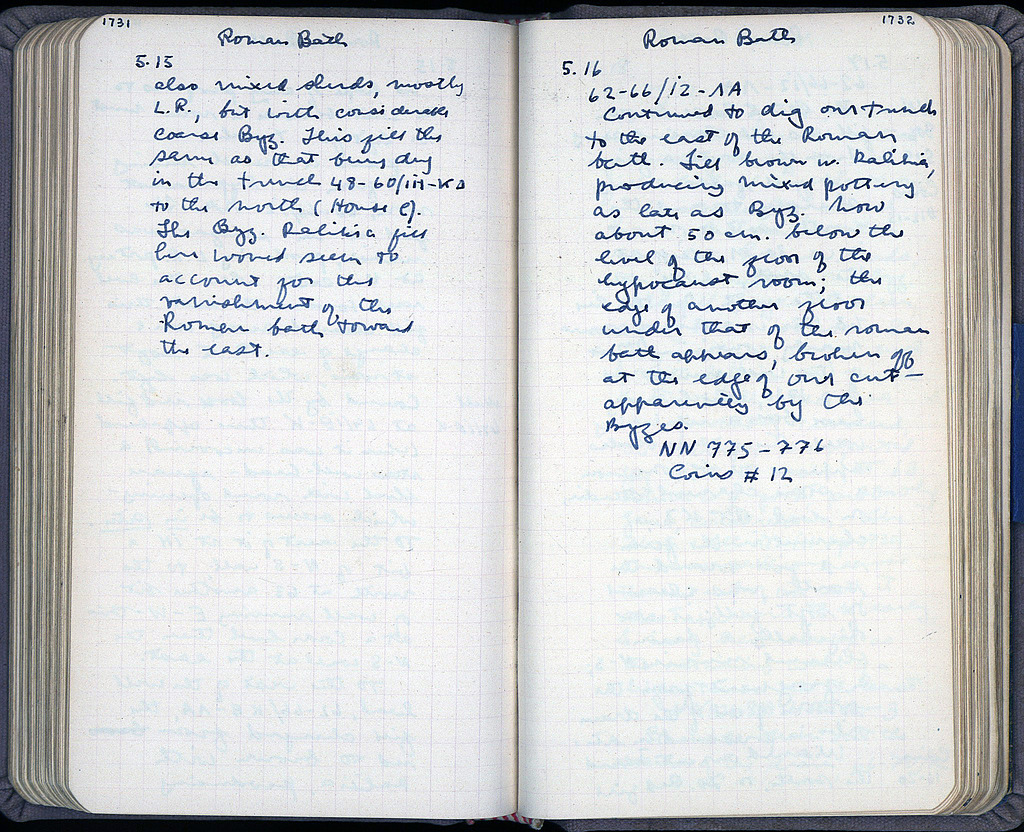 1731
Roman Bath
5.15
also mixed sherds, mostly
L.R., but with considerable
coarse Byz. This fill the
same as that being dug
in the trench 48-60/
to the north (House C).
The Byz. Ralikia fill
here would seem to
account for the
vanishment of the
Roman bath toward
the east.
1732
Roman Bath
5.16
62-66/ΙΖ-ΛΑ
Continued to dig our trench
to the east of the Roman
bath. Fill brown w. Ralikia,
producing mixed pottery
as late as Byz. Now
about 50 cm. below the
level of the floor of the
hypocaust room; the
edge of another floor
under that of the roman
bath appears, broken off
at the edge of our cut –
apparently by the
Byzes.
NN 775-776
Coins # 12